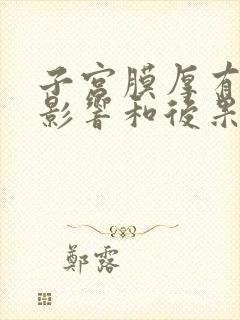 子宫膜厚有
影響和後果
鄭露